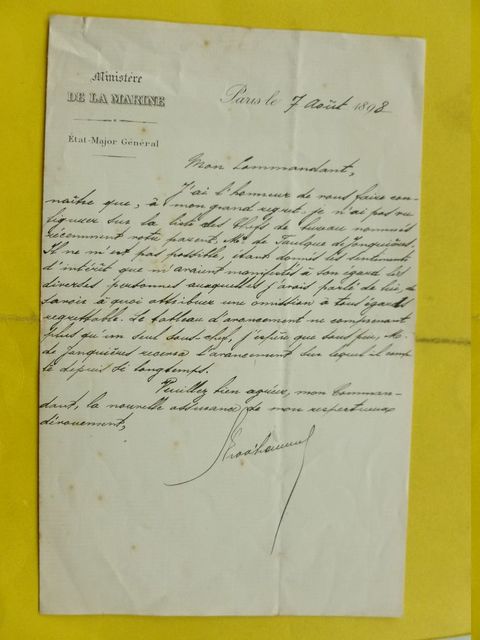 Ministère
DE LA MARINE
État-Major Général
Paris le 7 Août 1898
Mon Commandant,
J'ai l'honneur de vous faire con-
naître que, à mon grand regret, je n'ai pas vu
figurer sur la liste des Chefs de bureau nommés
récemment votre parent, Mr de Taulque de Jonquières.
Il ne m'est pas possible, étant donnés les sentiments
d'intérêt que m'avaient manifestés à son égard les
diverses personnes auxquelles j'avais parlé de lui, de
savoir à quoi attribuer une omission à tous égards
regrettable. Le tableau d'avancement ne comprenant
plus qu'un seul sous-chef, j'espère que sous peu, M.
de Jonquières recevra l'avancement sur lequel il comp
te depuis si longtemps.
Veuillez bien agréer, mon Comman-
dant, la nouvelle assurance de mon respectueux
dévouement,